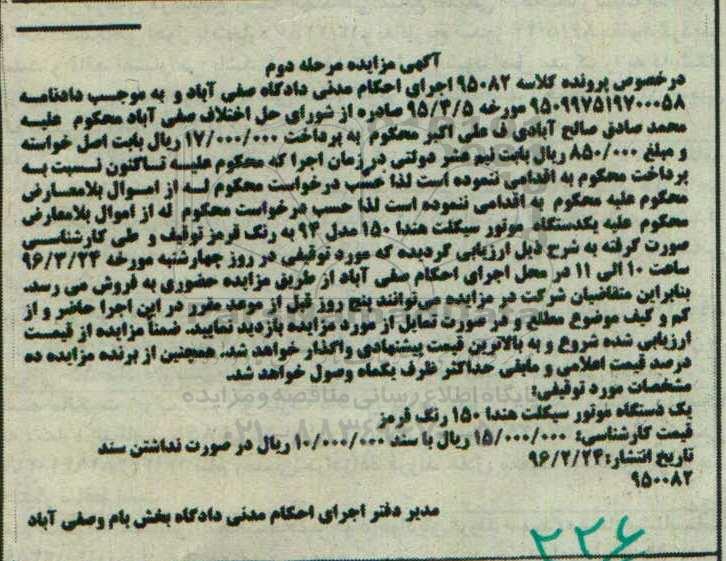 آگهی مزایده مرحله دوم
درخصوص پرونده کلاسه ۹۵۰۸۲ اجرای احکام مدنی دادگاه صفی آباد و به موجب دادنامه
۹۵۰۹۹۷۵۱۹۷۰۰۰۵۸ مورخه ۹۵/۳/۵ صادره از شورای حل اختلاف صفی آباد محکوم علیه
محمد صادق صالح آبادی ف علی اکبر محکوم به پرداخت ۱۷/۰۰۰/۰۰۰ ریال بابت اصل خواسته
و مبلغ ۸۵۰/۰۰۰ ریال بابت نیم عشر دولتی در زمان اجرا که محکوم علیه تاکنون نسبت به
پرداخت محکوم به اقدامی ننموده است لذا حسب درخواست محکوم له از اموال بلامعارض
محکوم علیه محکوم به اقدامی ننموده است لذا حسب درخواست محکوم له از اموال بلامعارض
محکوم علیه یکدستگاه موتور سیکلت هندا ۱۵۰ مدل ۹۳ به رنگ قرمز توقیف و طی کارشناسی
صورت گرفته به شرح ذیل ارزیابی گردیده که مورد توقیفی در روز چهارشنبه مورخه ۹۶/۳/۲۴
ساعت ۱۰ الی ۱۱ در محل اجرای احکام صفی آباد از طریق مزایده حضوری به فروش می رسد.
بنابراین متقاضیان شرکت در مزایده می‌توانند پنج روز قبل از موعد مقرر در این اجرا حاضر و از
کم و کیف موضوع مطلع و در صورت تمایل از مورد مزایده بازدید نمایند. ضمناً مزایده از قیمت
ارزیابی شده شروع و به بالاترین قیمت پیشنهادی واگذار خواهد شد. همچنین از برنده مزایده ده
درصد قیمت اعلامی و مابقی حداکثر ظرف یکماه وصول خواهد شد.
مشخصات مورد توقیفی:
یک دستگاه موتور سیکلت هندا ۱۵۰ رنگ قرمز
قیمت کارشناسی: ۱۵/۰۰۰/۰۰۰ ریال با سند ۱۰/۰۰۰/۰۰۰ ریال در صورت نداشتن سند
تاریخ انتشار: ۹۶/۲/۲۴
۹۵۰۰۸۲
مدیر دفتر اجرای احکام مدنی دادگاه بخش بام وصفی آباد
۲۲۶
پایگاه اطلاع رسانی مناقصه و مزایده